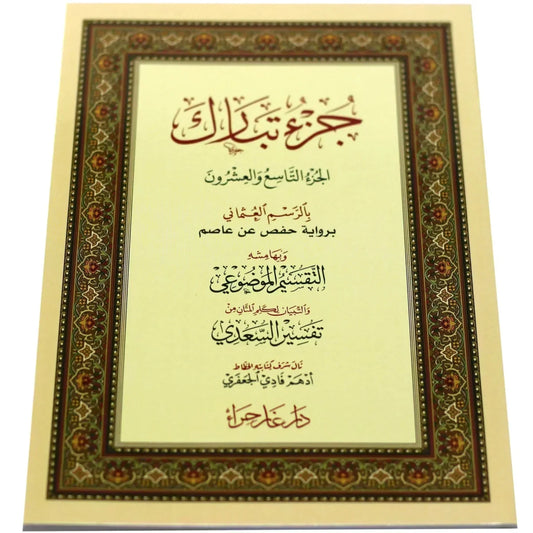 جُزْءُ تَبَارَكَ
الجُزْءُ التَّاسِعُ وَالعِشْرُونَ
بِالرَّسْمِ العُثْمَانِي
برواية حفص عن عاصم
وَبِهَامِشِهِ
التَّقْسِيمُ المَوْضُوعِي
وَالتِّبْيَان لِكَلِمِ المَنَّانِ مِنْ
تَفْسِير السَّعْدِي
نَالَ شَرَف كِتَابَتِهِ الخَطَّاط
أدْهَم فَادِي الجَعْفَرِي
دَار غَار حِرَاء